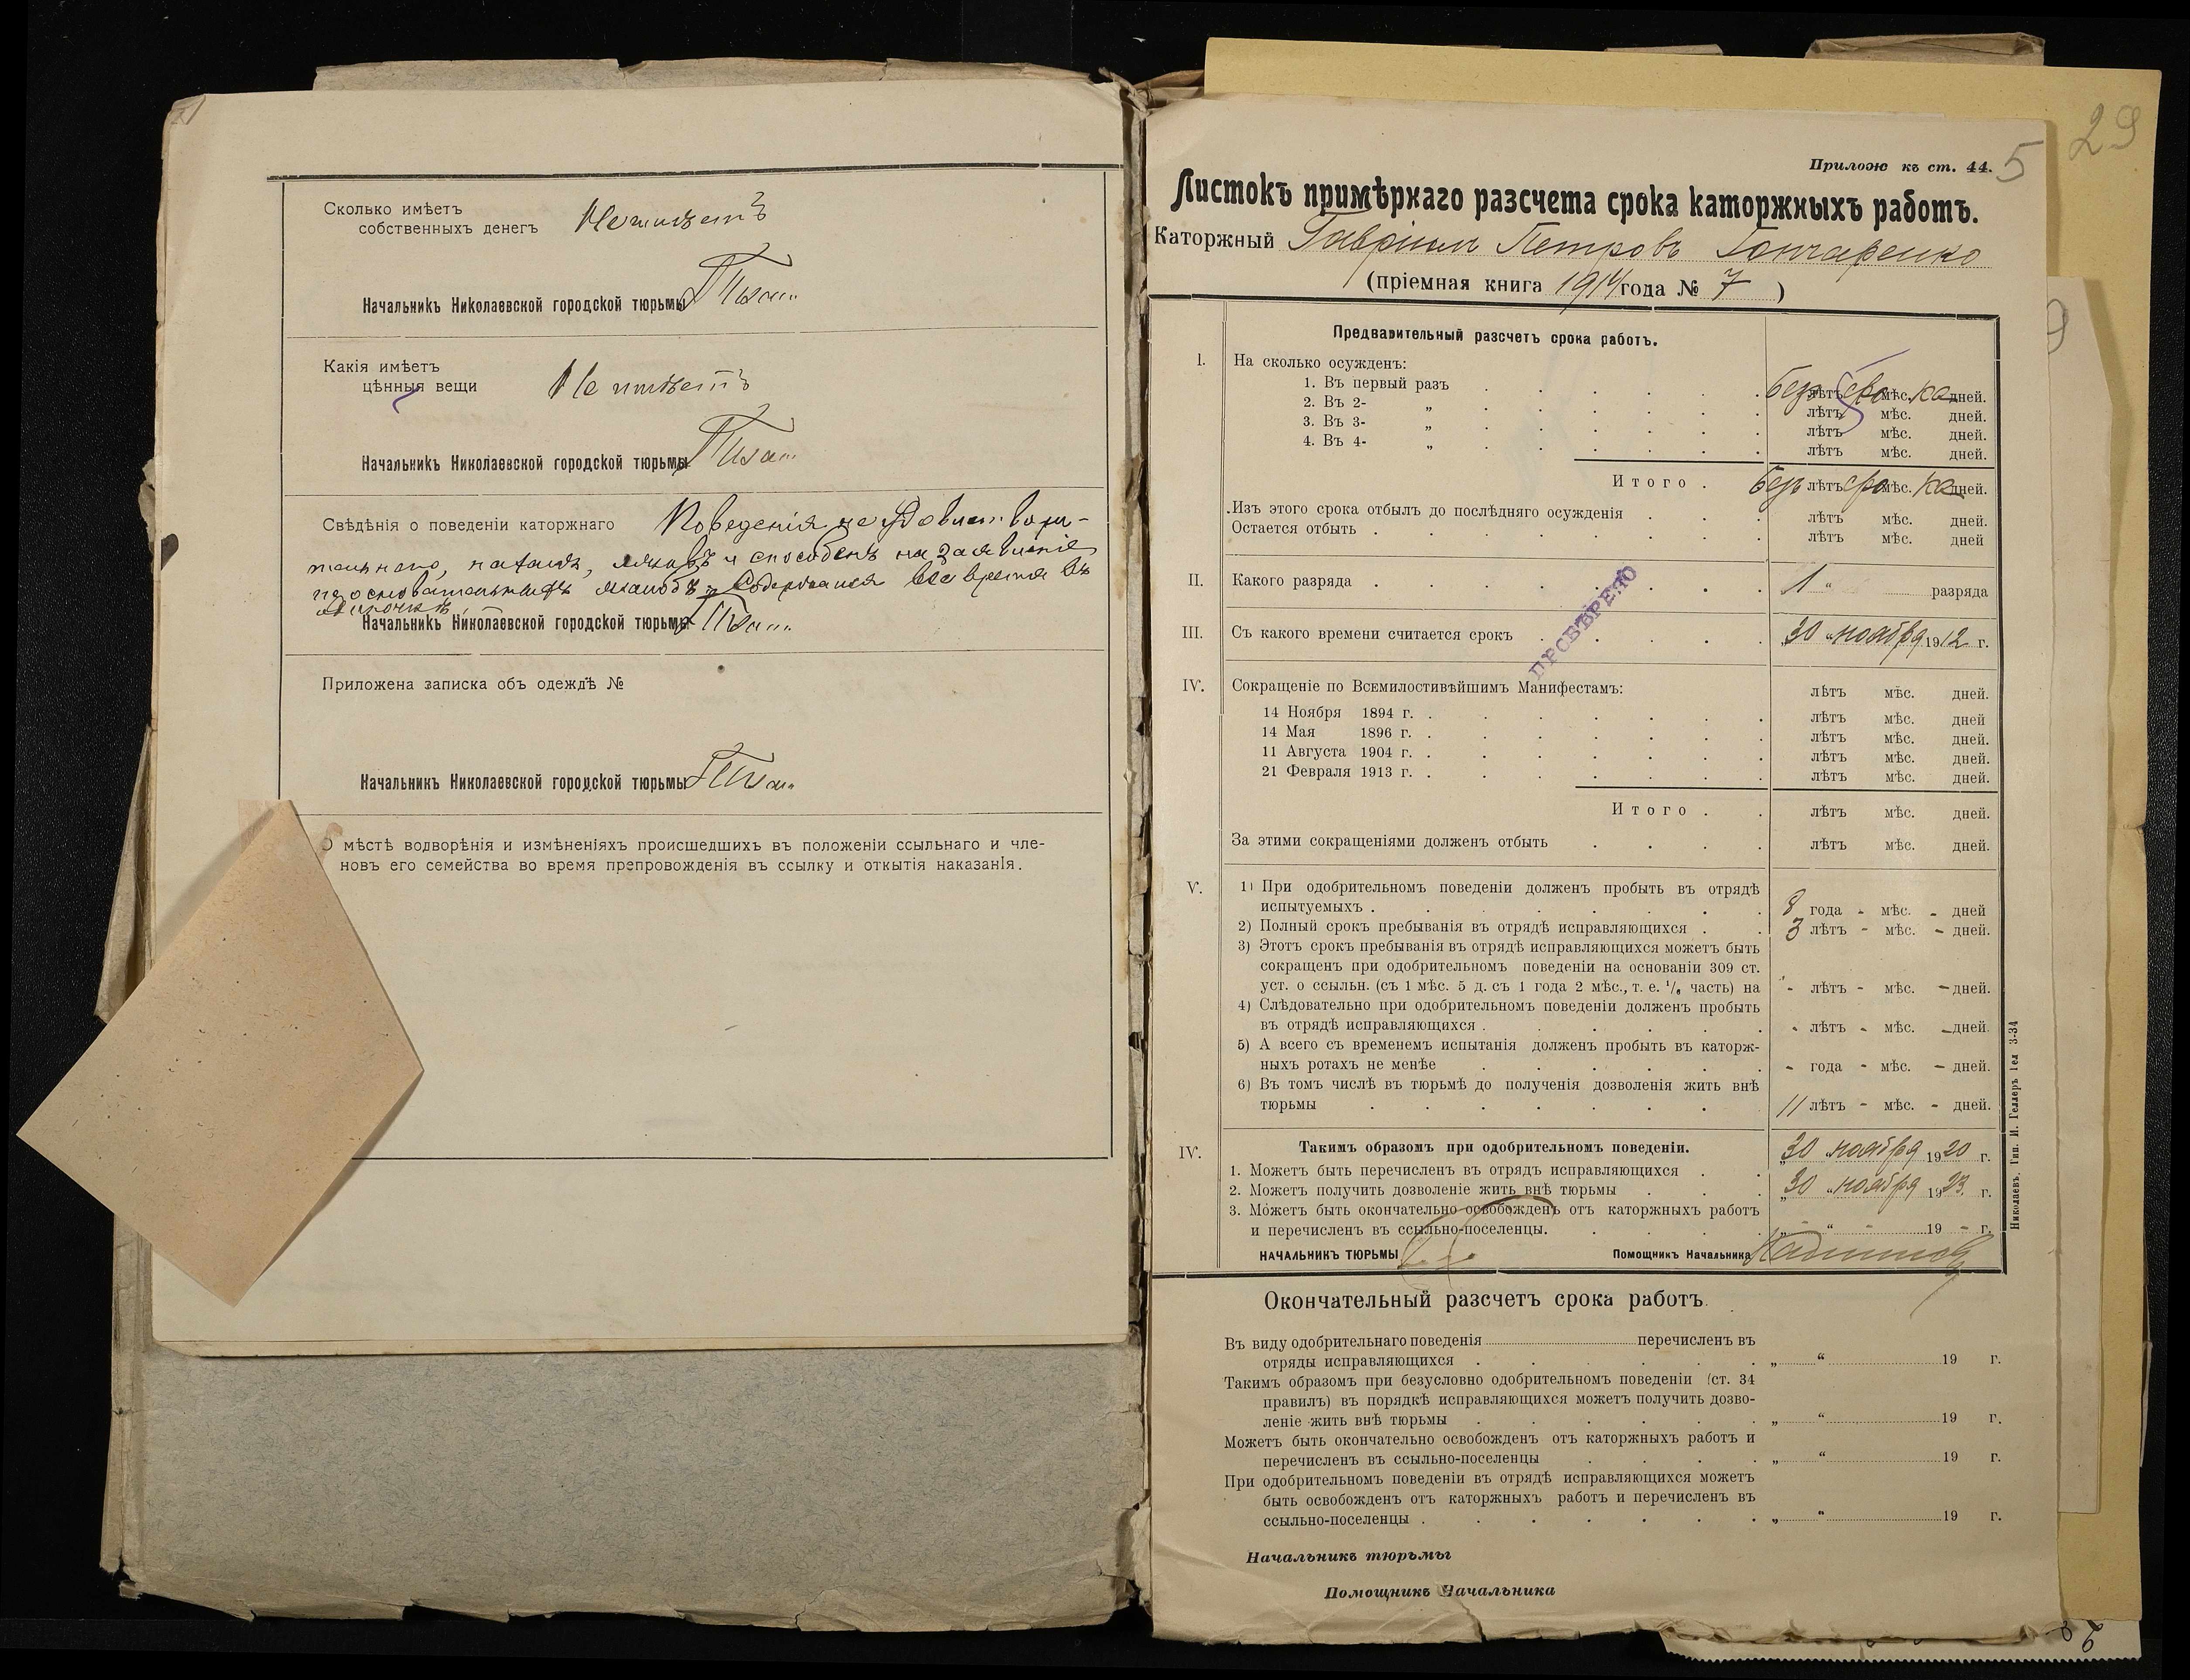 Сколько имѣетъ
собственныхъ денегъ Не имѣетъ
Начальникъ Николаевской городской тюрьмы
Какія имѣетъ
цѣнныя вещи Не имѣетъ
Начальникъ Николаевской городской тюрьмы
Свѣдѣнія о поведеніи каторжнаго Поведенія не удовлетвори-
тельнаго, нахалъ, и способенъ на заявленіе
неосновательныхъ жалобъ. Содержался все время въ
одиночкѣ
Начальникъ Николаевской городской тюрьмы
Приложена записка объ одеждѣ №
Начальникъ Николаевской городской тюрьмы
О мѣстѣ водворѣнія и измѣненіяхъ происшедшихъ въ положеніи ссыльнаго и чле-
новъ его семейства во время препровожденія въ ссылку и откытія наказанія.
29
Прилож къ ст. 44. 5
Листокъ примѣрнаго разсчета срока каторжныхъ работъ.
Каторжный Гавріилъ Петровъ Гончаренко
(пріемная книга 1914 года № 7 )
Предварительный разсчетъ срока работъ.
I. На сколько осужденъ:
1. Въ первый разъ безъ лѣтъ сро мѣс. ка дней.
2. Въ 2- „ лѣтъ мѣс. дней.
3. Въ 3- „ лѣтъ мѣс. дней.
4. Въ 4- „ лѣтъ мѣс. дней.
Итого . безъ лѣтъ сро мѣс. ка дней.
Изъ этого срока отбылъ до послѣдняго осужденія лѣтъ мѣс. дней.
Остается отбыть . лѣтъ мѣс. дней
II. Какого разряда . 1 " разряда
ПРОВѢРЕНО
III. Съ какого времени считается срокъ „30 “ ноября 1912 г.
IV. Сокращеніе по Всемилостивѣйшимъ Манифестамъ: лѣтъ мѣс. дней.
14 Ноября 1894 г. . лѣтъ мѣс. дней
14 Мая 1896 г. . лѣтъ мѣс. дней.
11 Августа 1904 г. . лѣтъ мѣс. дней.
21 Февраля 1913 г. . лѣтъ мѣс. дней.
Итого . лѣтъ мѣс. дней.
За этими сокращеніями долженъ отбыть лѣтъ мѣс. дней.
V. 1) При одобрительномъ поведеніи долженъ пробыть въ отрядѣ
испытуемыхъ . 8 года - мѣс. - дней
2) Полный срокъ пребыванія въ отрядѣ исправляющихся . 3 лѣтъ - мѣс. - дней.
3) Этотъ срокъ пребыванія въ отрядѣ исправляющихся можетъ быть
сокращенъ при одобрительномъ поведеніи на основаніи 309 ст.
уст. о ссыльн. (съ 1 мѣс. 5 д. съ 1 года 2 мѣс., т. е. 1/6 часть) на - лѣтъ - мѣс. - дней.
4) Слѣдовательно при одобрительномъ поведеніи долженъ пробыть
въ отрядѣ исправляющихся . - лѣтъ - мѣс. - дней.
5) А всего съ временемъ испытанія долженъ пробыть въ каторж-
ныхъ ротахъ не менѣе - года - мѣс. - дней.
6) Въ томъ числѣ въ тюрьмѣ до полученія дозволенія жить внѣ
тюрьмы . 11 лѣтъ - мѣс. - дней.
IV. Такимъ образомъ при одобрительномъ поведеніи.
1. Можетъ быть перечисленъ въ отрядъ исправляющихся . „30 ноября 1920 г.
2. Можетъ получить дозволеніе жить внѣ тюрьмы „30 “ ноября 1923. г.
3. Можетъ быть окончательно освобожденъ отъ каторжныхъ работъ
и перечисленъ въ ссыльно-поселенцы. „ - “ - 19 - г.
НАЧАЛЬНИКЪ ТЮРЬМЫ Помощникъ Начальника
Николаевъ. Тип. И. Геллеръ Тел 3-34
Окончательный разсчетъ срока работъ.
Въ виду одобрительнаго поведенія перечисленъ въ
отряды исправляющихся . „ “ 19 г.
Такимъ образомъ при безусловно одобрительномъ поведеніи (ст. 34
правилъ) въ порядкѣ исправляющихся можетъ получить дозво-
леніе жить внѣ тюрьмы . „ “ 19 г.
Можетъ быть окончательно освобожденъ отъ каторжныхъ работъ и
перечисленъ въ ссыльно-поселенцы „ “ 19 г.
При одобрительномъ поведеніи въ отрядѣ исправляющихся можетъ
быть освобожденъ отъ каторжныхъ работъ и перечисленъ въ
ссыльно-поселенцы . „ “ 19 г.
Начальникъ тюрьмы
Помощникъ Начальника